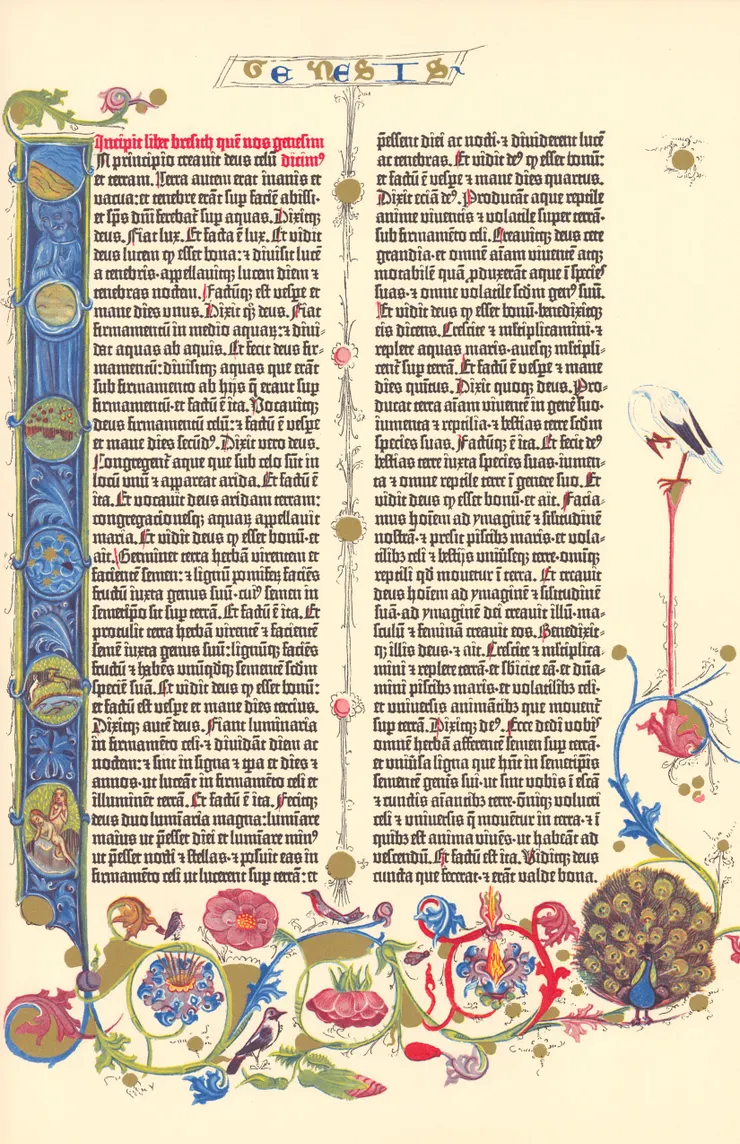 GENESIS
Incipit liber bresith quē nos genesim
In principio creauit deus celū dicim⁹
et terram. Terra autem erat inanis et
vacua: et tenebre erāt sup faciē abissi:
et sp̄s dn̄i ferebat̄ sup aquas. Dixitq;
deus. Fiat lux. Et facta ē lux. Et vidit
deus lucem q̄ esset bona: ⁊ diuisit lucē
a tenebris·appellauitq; lucem diem ⁊
tenebras noctem. Factūq; est vespe et
mane dies vnus. Dixit q̄ꝫ deus. Fiat
firmamentū in medio aquaꝝ: ⁊ diui-
dat aquas ab aquis. Et fecit deus fir-
mamentū: diuisitq; aquas que erāt
sub firmamento ab hijs q̄ erant sup
firmamentū: et factū ē ita. Vocauitq;
deus firmamentū celū: ⁊ factū ē vespe
et mane dies secūd⁹. Dixit vero deus.
Congregent̄ aque que sub celo sūt in
locū vnū ⁊ appareat arida. Et factū ē
ita. Et vocauit deus aridam terram:
congregacionesq; aquaꝝ appellauit
maria. Et vidit deus q̄ esset bonū·et
ait. Germinet terra herbā virentem et
facientē semen: ⁊ lignū pomiferꝝ faciēs
fructū iuxta genus suū·cui⁹ semen in
semetip̄o sit sup terrā. Et factū ē ita. Et
protulit terra herbā virentē ⁊ facientē
semē iuxta genus suū: lignūq; faciēs
fructū ⁊ habēs vnūqdq; sementē scdm
speciē suā. Et vidit deus q̄ esset bonū:
et factū est vespe et mane dies tercius.
Dixitq; autē deus. Fiant luminaria
in firmamēto celi·⁊ diuidāt diem ac
noctem: ⁊ sint in signa ⁊ tp̄a et dies ⁊
annos·ut luceāt in firmamēto celi et
illuminēt terrā. Et factū ē ita. Fecitq;
deus duo lumīaria magna: lumīare
maius ut p̄esset diei et lumīare min⁹
ut p̄esset nocti ⁊ stellas·⁊ posuit eas in
firmamēto celi ut lucerent sup terrā: et
p̄essent diei ac nocti·⁊ diuiderent lucē
ac tenebras. Et vidit de⁹ q̄ esset bonū:
et factū ē vespe ⁊ mane dies quartus.
Dixit eciā de⁹. Producāt aque reptile
anime viuentis ⁊ volatile super terrā·
sub firmamēto celi. Creauitq; deus cete
grandia·et omnē aīam viuentē atq;
motabilē quā p̄duxerāt aque ī species
suas·⁊ omne volatile scdm gen⁹ suū.
Et vidit deus q̄ esset bonū·benedixitq;
eis dicens. Crescite ⁊ mltiplicamini·⁊
replete aquas maris·auesq; mltipli-
cent̄ sup terrā. Et factū ē vespe ⁊ mane
dies quītus. Dixit quoq; deus. Pro-
ducat terra aīam viuentē in genē suo·
iumenta ⁊ reptilia·⁊ bestias terre scdm
species suas. Factūq; ē ita. Et fecit de⁹
bestias terre iuxta species suas·iumen-
ta ⁊ omne reptile terre ī genere suo. Et
vidit deus q̄ esset bonū·et ait. Facia-
mus hoīem ad ymaginē ⁊ silitudinē
nostrā·⁊ presit piscibꝫ maris·et vola-
tilibꝫ celi ⁊ bestijs vniūseq; terre·omīq;
reptili qd mouetur ī terra. Et creauit
deus hoīem ad ymaginē ⁊ silitudinē
suā·ad ymaginē dei creauit illū·ma-
sculū ⁊ feminā creauit eos. Benedixit-
q; illis deus·⁊ ait. Crescite ⁊ mltiplica-
mini ⁊ replete terrā·et sbicite eā·et dn̄a-
mini piscibꝫ maris·et volatilibꝫ celi·
et vniuersis animātibꝫ que mouent̄
sup terrā. Dixitq; de⁹. Ecce dedi vobis
omnē herbā afferentē semen sup terrā·
et vniūsa ligna que hn̄t in semetip̄is
sementē genis sui·ut sint vobis ī escā
⁊ cunctis aīantibꝫ terre·oīniq; volucri
celi ⁊ vniuersis q̄ mouent̄ in terra·⁊ ī
quibꝫ est anima viuēs·ut habeāt ad
vescendū. Et factū est ita. Viditq; deus
cuncta que fecerat·⁊ erāt valde bona.